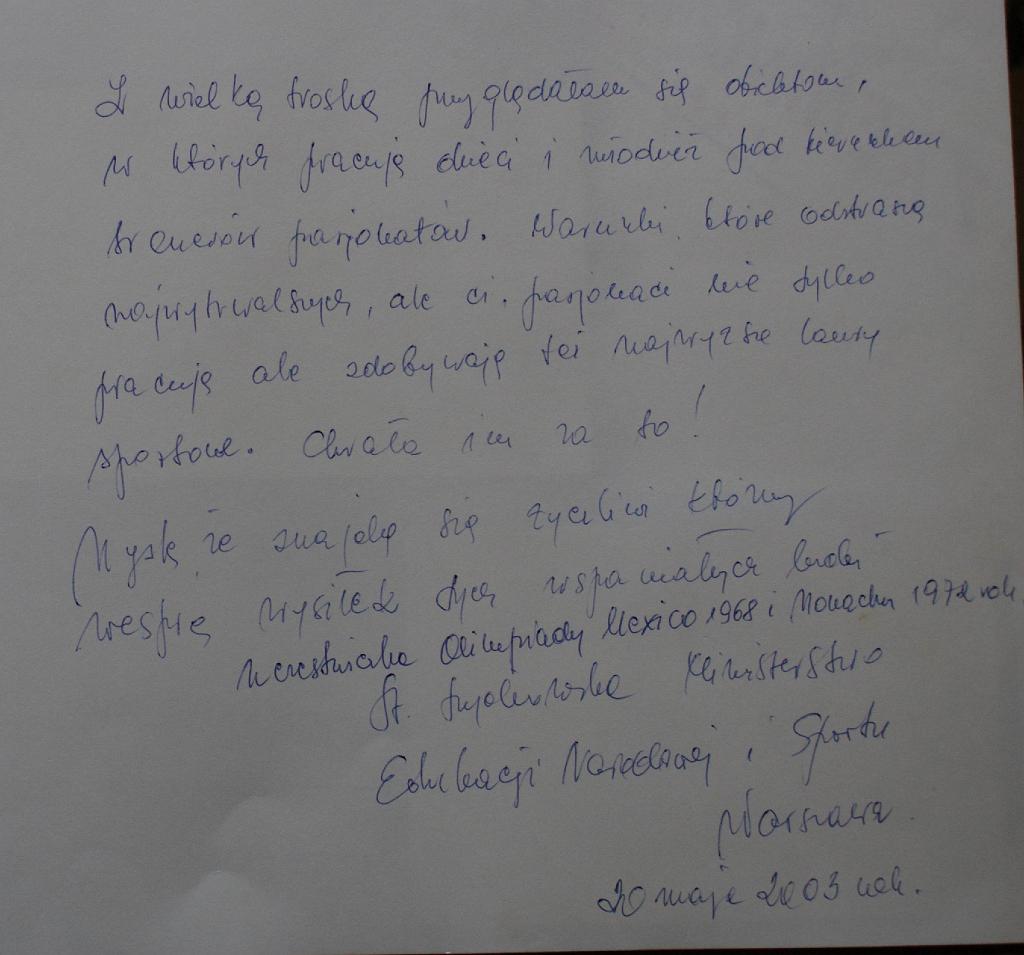 Z wielką troską przyglądałam się obiektom,
w których pracują dzieci i młodzież pod kierunkiem
trenerów pasjonatów. Warunki, które odstraszą
najwytrwalszych, ale ci, pasjonaci nie tylko
pracują ale zdobywają też najwyższe laury
sportowe. Chwała im za to!
Myślę że znajdą się życzliwi którzy
wesprą wysiłek tych wspaniałych ludzi
Uczestniczka Olimpiady Mexico 1968 i Monachium 1972 rok
St. Ministerstwo
Edukacji Narodowej i Sportu
Warszawa.
20 maja 2003 rok.